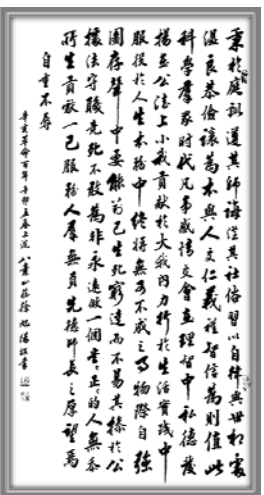 秉於庭訓遵其師誨從其社俗習以自律與世相處
溫良恭儉讓為本與人交仁義禮智信為則值此
科學羣眾時代凡事感情交會立理智中私德發
揚並公法上小我貢獻於大我內力行於生活實踐中
服役於人生本務中終將無不成之事物際自強
圖存聲中要能前已生死窮達而不易其操於公
據法守賤死不敢為非永遠做一個堂正的人無忝
所生貢獻一己服務人羣無負先德師長之厚望焉
自重不辱
辛亥革命百年辛卯孟春上浣八叟